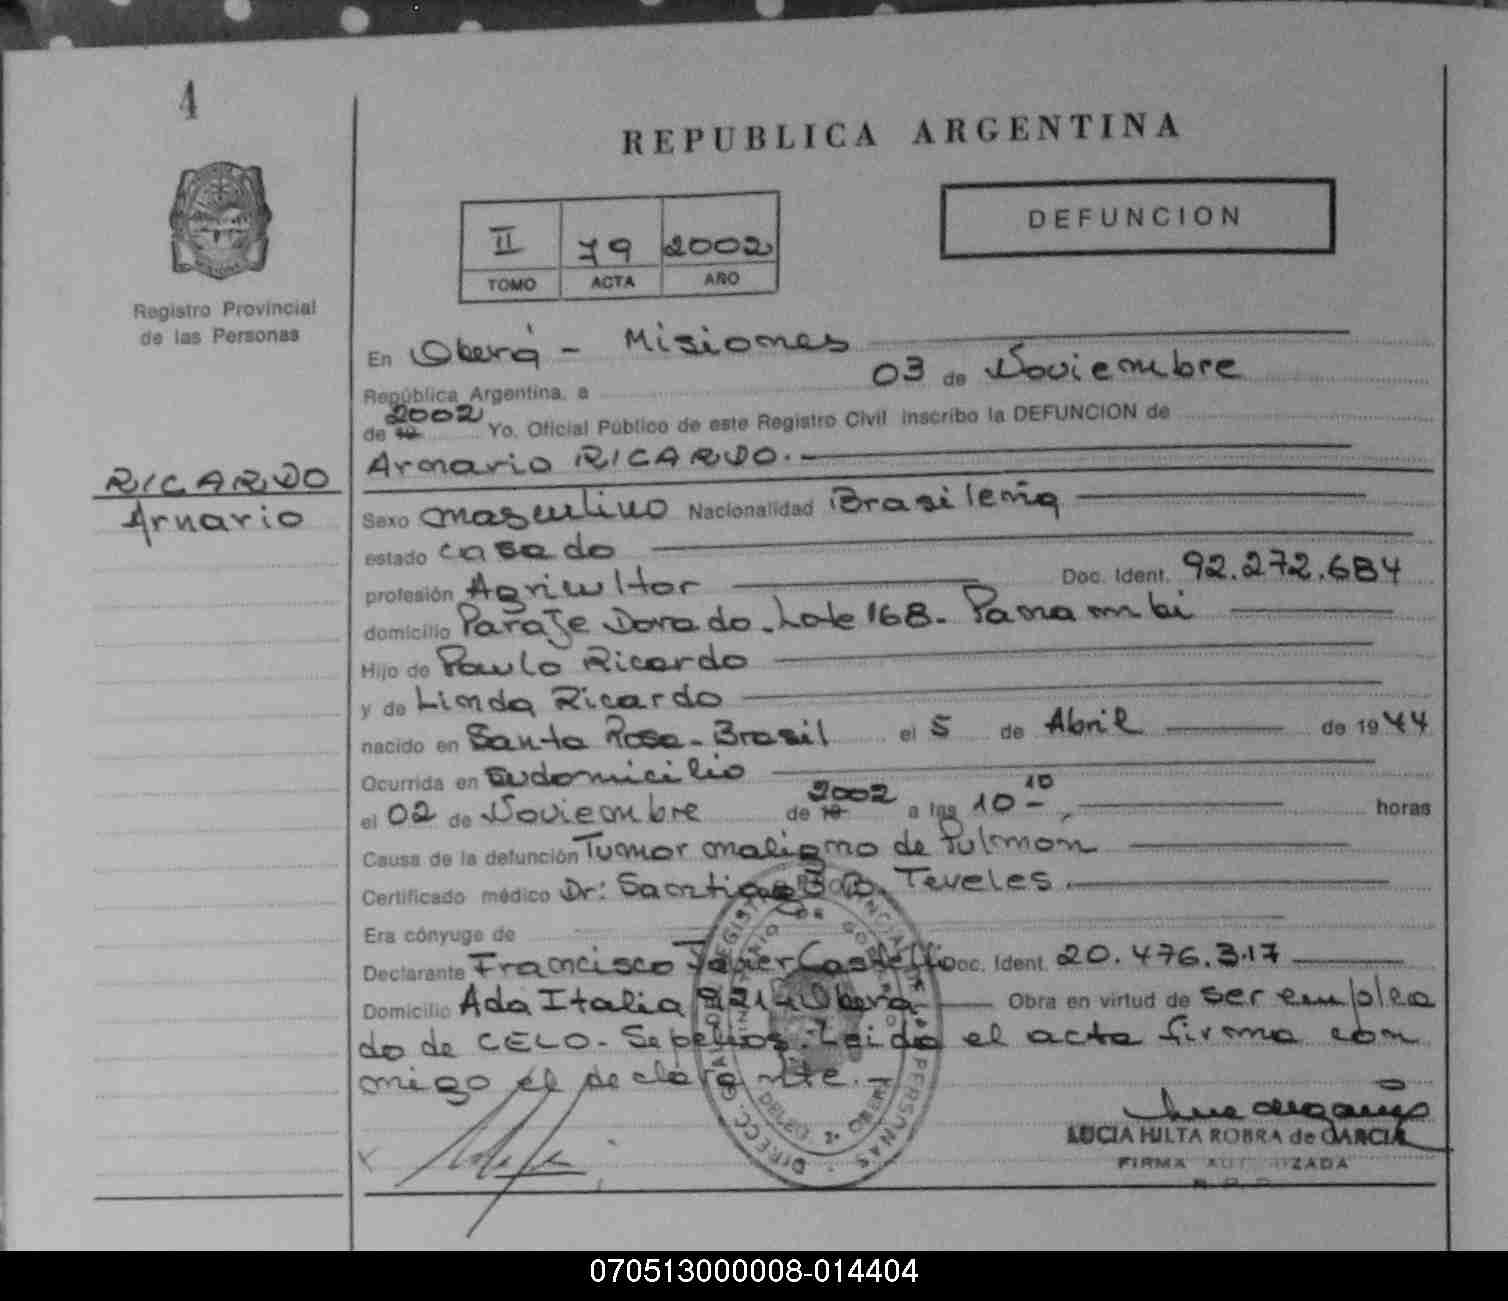 1
REPUBLICA ARGENTINA
DEFUNCION
II 79 2002
TOMO ACTA AÑO
Registro Provincial
de las Personas
En Oberá - Misiones
República Argentina, a 03 de Noviembre
de 19 2002 Yo, Oficial Público de este Registro Civil inscribo la DEFUNCION de
Arnario RICARDO.-
RICARDO
Arnario
Sexo masculino Nacionalidad Brasileña
estado casado
profesión Agricultor Doc. Ident. 92.272.684
domicilio Paraje Dorado. Lote 168- Panambi
Hijo de Paulo Ricardo
y de Linda Ricardo
nacido en Santa Rosa - Brasil el 5 de Abril de 1944
Ocurrida en sudomicilio
el 02 de Noviembre de 19 2002 a las 10 - 10 horas
Causa de la defunción Tumor maligno de Pulmón
Certificado médico Dr: Santiago Teveles.
Era cónyuge de
Declarante Francisco Javier Castello Doc. Ident. 20.476.317
Domicilio Ada Italia 921 - Oberá Obra en virtud de ser emplea
do de CELO - Sepelios. Leida el acta firma con
migo el declarante.-
LUCIA HILTA ROBRA de GARCIA
FIRMA AUTORIZADA
070513000008-014404